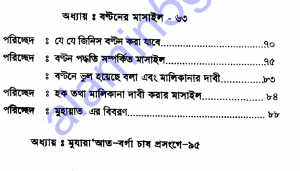 অধ্যায় : বন্টনের মাসাইল - ৬৩
পরিচ্ছেদ : যে যে জিনিস বণ্টন করা যাবে....................৭০
পরিচ্ছেদ : বণ্টন পদ্ধতি সম্পর্কিত মাসাইল....................৭৫
পরিচ্ছেদ : বণ্টনে ভুল হয়েছে বলা এবং মালিকানার দাবী....................৮৩
পরিচ্ছেদ : হক তথা মালিকানা দাবী করার মাসাইল....................৮৪
পরিচ্ছেদ : মুহায়াত এর বিবরণ....................৮৮
অধ্যায় : মুযারা'আত-বর্গা চাষ প্রসংগে-৯৫